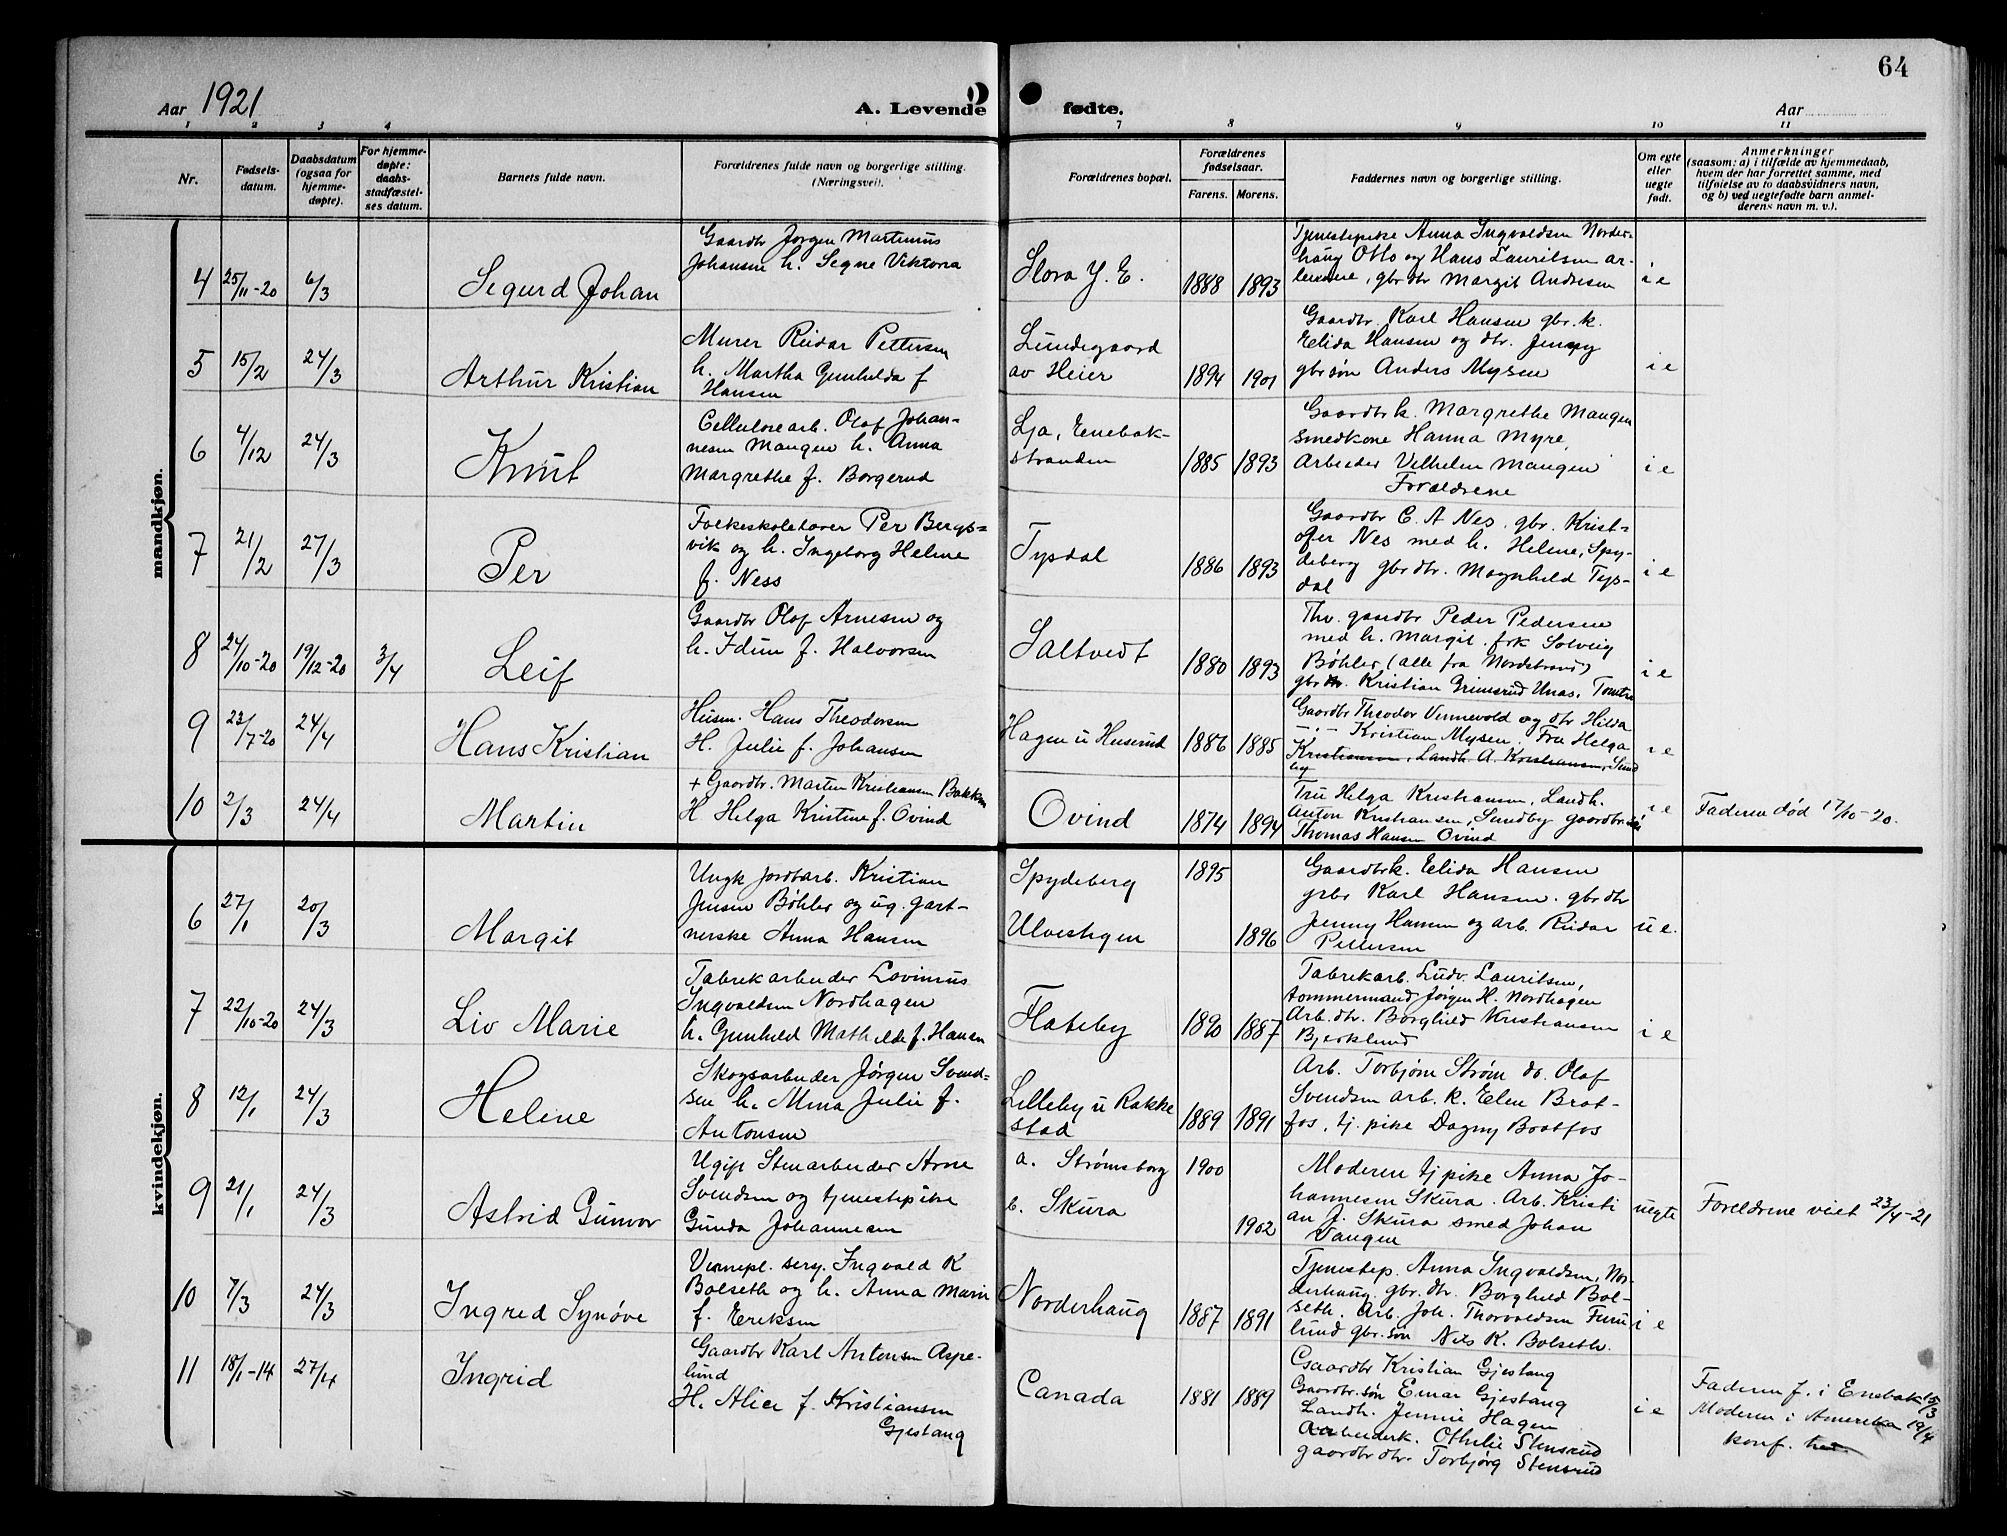 64
Aar 1921
A. Levende fødte.
Aar
1 2 3 4 7 8 9 10 11
Nr.
Fødsels-
datum.
Daabsdatum
(ogsaa for
hjemme-
døpte).
For hjemme-
døpte:
daabs-
stadfæstel-
ses datum.
Barnets fulde navn.
Forældrenes fulde navn og borgerlige stilling.
(Næringsvei).
Forældrenes bopæl.
Forældrenes
fødselsaar.
Farens. Morens.
Faddernes navn og borgerlige stilling.
Om egte
eller
uegte
født.
Anmerkninger
(saasom: a) i tilfælde av hjemmedaab,
hvem der har forrettet samme, med
tilføielse av to daabsvidners navn,
og b) ved uegtefødte barn anmel-
derens navn m. v.).
mandkjøn.
4 25/11-20 6/3 Sigurd Johan
Gaardbr Jørgen Martinius
Johansen h. Signe Viktoria
Slora Y. E. 1888 1893
Tjenestepike Anna Ingvaldsen Norder-
haug Otto og Hans Lauritsen ar-
beidere, gbr dtr Margit Andresen
i e
5 15/2 24/3 Arthur Kristian
Murer Reidar Pettersen
h. Martha Gunhilda f
Hansen
Lundegaard
av Heier 1894 1901
Gaardbr Karl Hansen gbr. k.
Elida Hansen og dtr. Jenny
gbr søn Anders Mysen
i e
6 4/12 24/3 Knut
Cellulosearb. Olaf Johan-
nesen Mangen h. Anna
Margrethe f. Borgerud
Lja, Enebak-
stranden 1885 1893
Gaardbr k. Margrethe Mangen
smedkone Hanna Myre,
Arbeider Vilhelm Mangen
Forældrene
i e
7 21/2 27/3 Per
Folkeskolelærer Per Bergs-
vik og h. Ingeborg Helene
f. Ness
Tysdal 1886 1893
Gaardbr C. A Nes. gbr. Krist-
ofer Nes med h. Helene, Spy-
deberg gbr dtr. Magnhild Tys-
dal
i e
8 24/10-20 19/12-20 3/4 Leif
Gaardbr Olaf Arnesen og
h. Idun f. Halvorsen
Saltvedt 1880 1893
Thv. gaardbr Peder Pedersen
med h. Margit. frk Solveig
Bøhler (alle fra Nordstrand)
gbr. Kristian Grimsrud Unas, Tomter
i e
9 23/7-20 24/4 Hans Kristian
Husm. Hans Theodorsen
H. Julie f. Johansen
Hagen u Huserud 1886 1885
Gaardbr Theodor Vennevold og dtr Hilda
- " - Kristian Mysen. Fru Helga
Kristiansen, Landh. A. Kristiansen, Sund
by
i e
10 2/3 24/4 Martin
+ Gaardbr. Martin Kristiansen Bakken
H Helga Kristine f. Ovind
Ovind 1874 1894
Fru Helga Kristiansen, Landh.
Anton Kristiansen, Sundby gaardbr
Thomas Hansen Ovind
i e
Faderen død 17/10-20.
kvindekjøn.
6 27/1 20/3 Margit
Ungk jordbarb. Kristian
Jensen Bøhler og ug. gart-
nerske Anna Hansen
Spydeberg 1895
Ulvestigen 1896
Gaardbrk. Elida Hansen
gsbr Karl Hansen. gbr dtr
Jenny Hansen og arb. Reidar
Pettersen
u e.
7 22/10-20 24/3 Liv Marie
Fabrikarbeider Lovinius
Ingvaldsen Nordhagen
h. Gunhild Mathilde f. Hansen
Flateby 1890 1887
Fabrikarb. Ludv. Lauritsen,
tømmermand Jørgen H. Nordhagen
Arb. dtr. Borghild Kristiansen
Bjerklund
i e
8 12/1 24/3 Helene
Skogsarbeider Jørgen Svend-
sen h. Mina Julie f.
Antonsen
Lilleby u Rakke
stad 1889 1891
Arb. Torbjørn Strøm do. Olaf
Svendsen arb. k. Elen Brat-
fos, tj. pike Dagny Bratfos
9 21/1 24/3 Astrid Gunvor
Ugift Stenarbeider Arne
Svendsen og tjenestepike
Gunda Johannesen
a. Strømsborg 1900
b. Skura 1902
Moderen tj pike Anna Jo-
hannesen Skura. Arb. Kristi
an J. Skura smed Johan
Vangen
uegte
Foreldrene viet 23/4-21
10 7/3 24/3 Ingrid Synøve
Vernepl. serg. Ingvald K
Bolseth og h. Anna Marie
f. Eriksen
Norderhaug 1887 1891
Tjenestep. Anna Ingvaldsen, Nor-
derhaug, gbr. dtr. Borghild Bol-
seth. Arb. Joh. Thorvaldsen Furu
lund gbr. søn Nils K. Bolseth.
i e
11 18/1-14 27/4 Ingrid
Gaardbr Karl Antonsen Aspe-
lund
H. Alice f. Kristiansen
Gjestang
Canada 1881 1889
Gaardbr Kristian Gjestang
Gaardbr. søn Einar Gjestang
Landh. Jennie Hagen
Arbeiderk. Othilie Stensrud
gaardbr dtr. Torbjørg Stensrud
i e
Faderen f. i Enebak 15/3
Moderen i Amerika 19/4
konf.